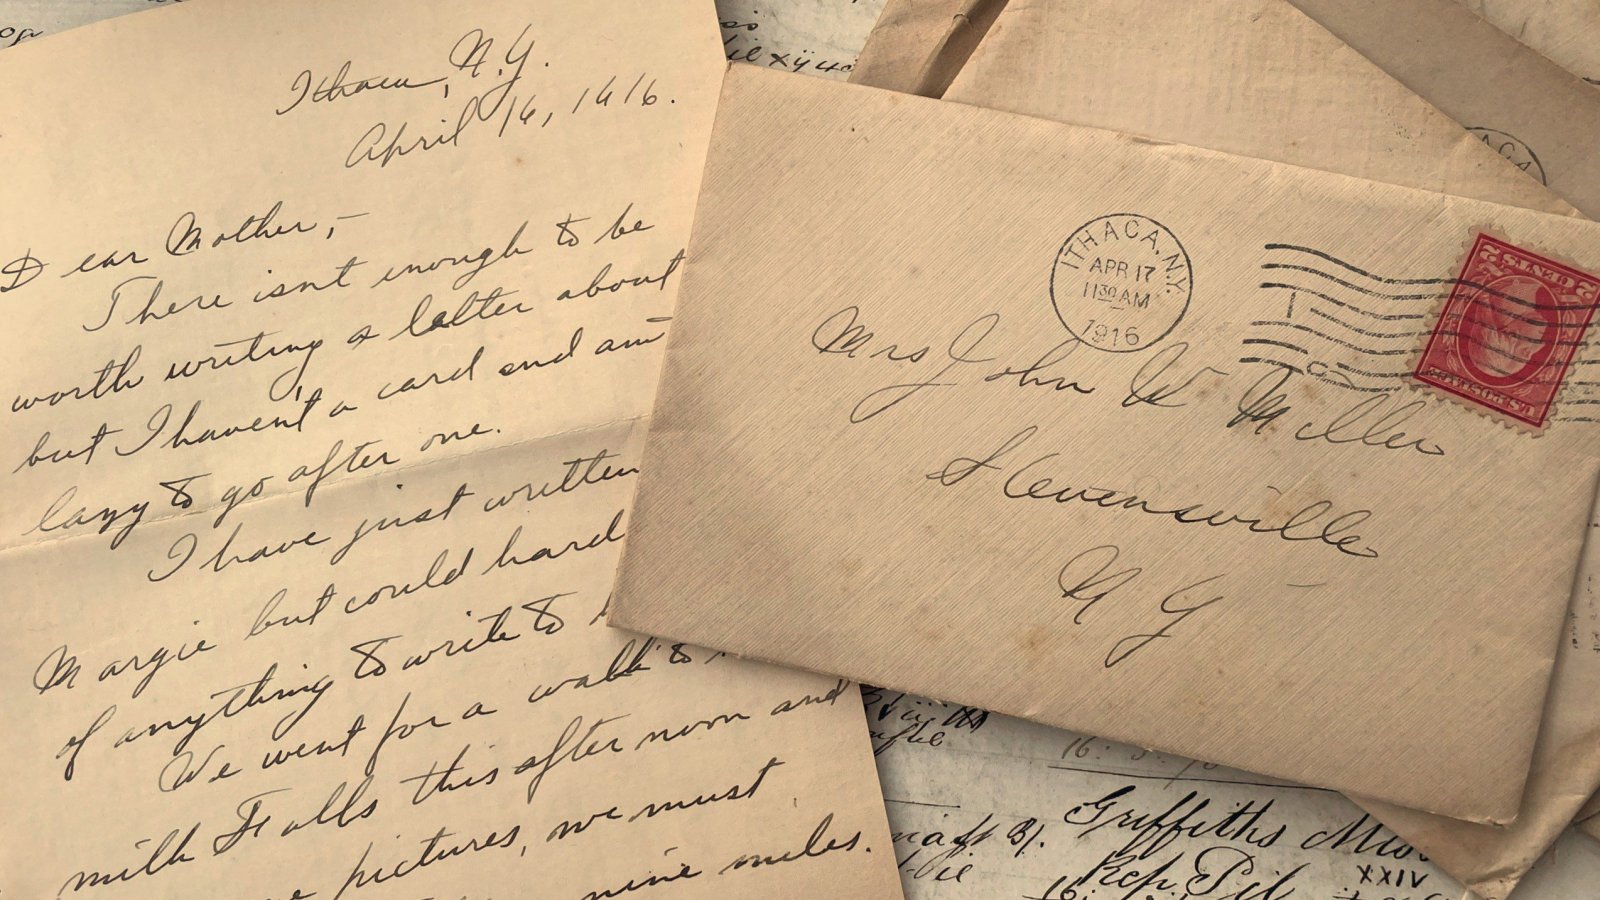 Ithaca, N.Y.
April 16, 1916.
Dear Mother,-
There isn't enough to be
worth writing a letter about
but I havent a card and am
lazy to go after one.
I have just written
Margie but could hard
of anything to write to
We went for a walk to
milk Falls this after noon and
pictures, we must
nine miles.
ITHACA, N.Y.
APR 17
11 30 AM
1916
2 CENTS 2
U.S. POSTAGE
Mrs John W Miller
Stevensville
N Y
ACA
Griffiths
Rep. Pil
XXIV